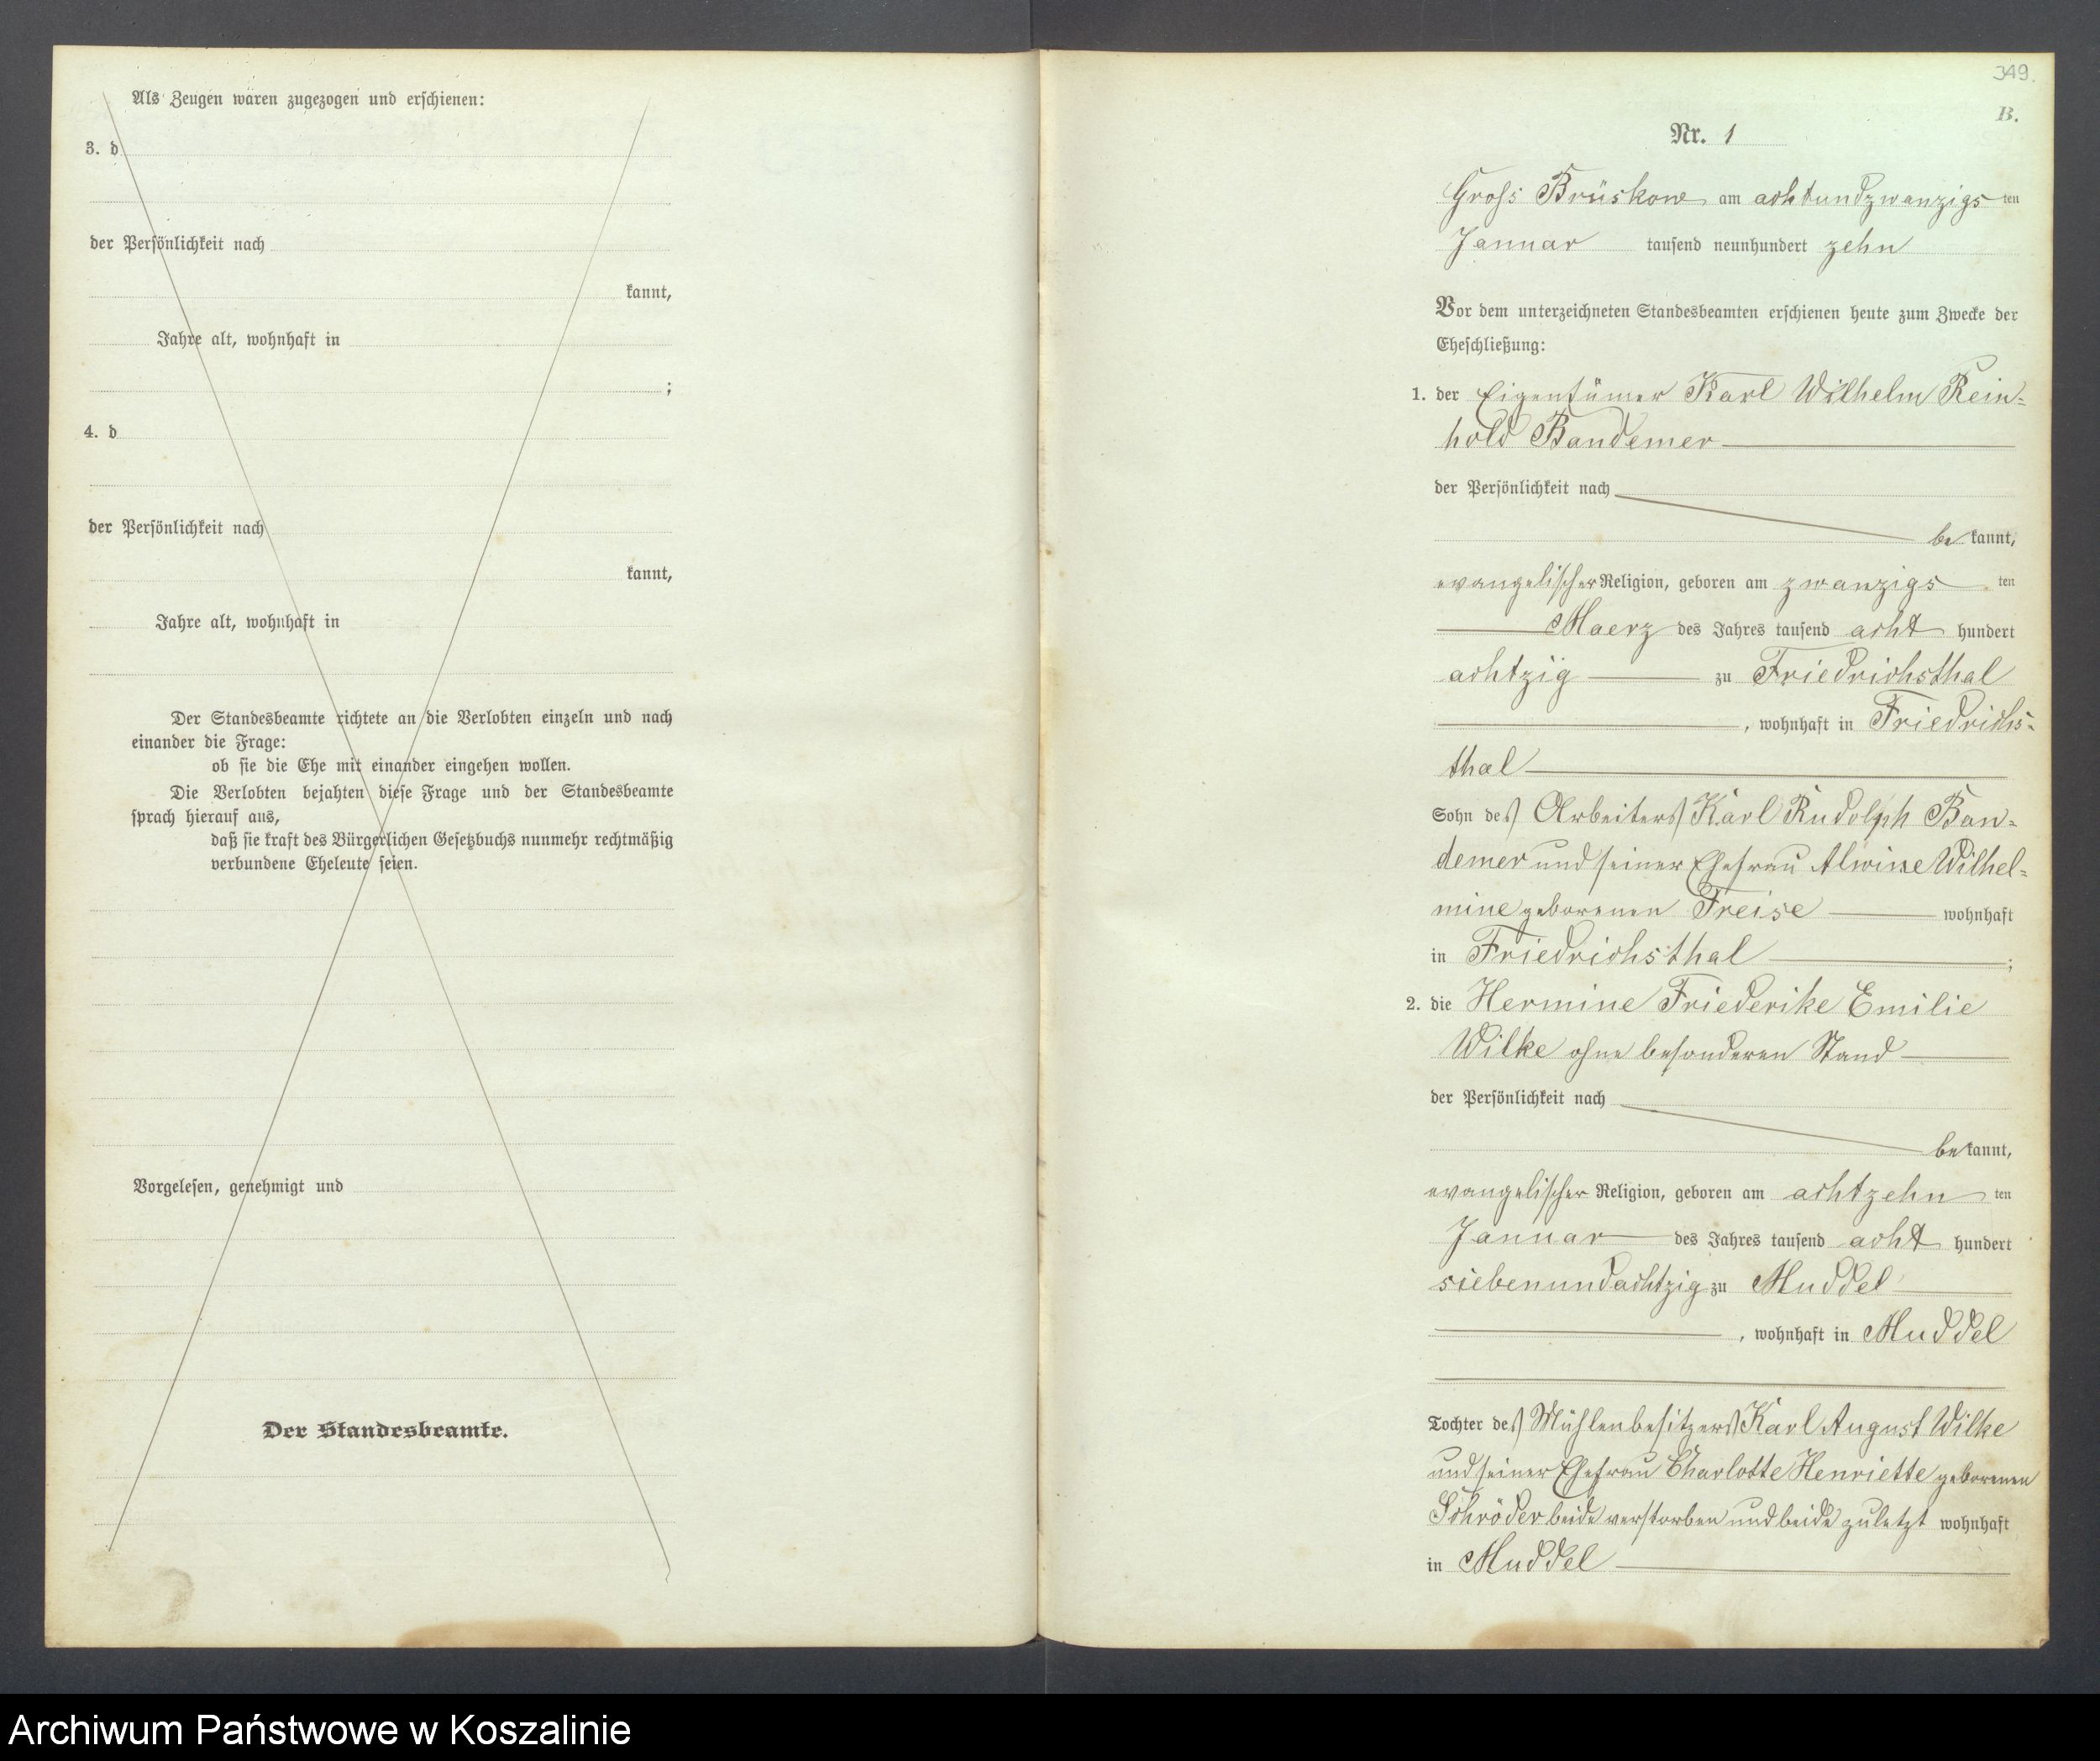 Als Zeugen waren zugezogen und erschienen:
3. d
der Persönlichkeit nach
kannt,
Jahre alt, wohnhaft in
;
4. d
der Persönlichkeit nach
kannt,
Jahre alt, wohnhaft in
Der Standesbeamte richtete an die Verlobten einzeln und nach
einander die Frage:
ob sie die Ehe mit einander eingehen wollen.
Die Verlobten bejahten diese Frage und der Standesbeamte
sprach hierauf aus,
daß sie kraft des Bürgerlichen Gesetzbuchs nunmehr rechtmäßig
verbundene Eheleute seien.
Vorgelesen, genehmigt und
Der Standesbeamte.
349.
B.
Nr. 1
Gross Brüskow am achtundzwanzigs ten
Januar tausend neunhundert zehn
Vor dem unterzeichneten Standesbeamten erschienen heute zum Zwecke der
Eheschließung:
1. der Eigentümer Karl Wilhelm Rein-
hold Bandemer
der Persönlichkeit nach
be kannt,
evangelischer Religion, geboren am zwanzigs ten
Maerz des Jahres tausend acht hundert
achtzig zu Friedrichsthal
, wohnhaft in Friedrichs-
thal
Sohn des Arbeiters Karl Rudolph Ban-
demer und seiner Ehefrau Alwine Wilhel-
mine geborenen Freise wohnhaft
in Friedrichsthal ;
2. die Hermine Friederike Emilie
Wilke ohne besonderen Stand
der Persönlichkeit nach
be kannt,
evangelischer Religion, geboren am achtzehn ten
Januar des Jahres tausend acht hundert
siebenundachtzig zu Muddel
, wohnhaft in Muddel
Tochter des Mühlenbesitzers Karl August Wilke
und seiner Ehefrau Charlotte Henriette geborenen
Schröder beide verstorben und beide zuletzt wohnhaft
in Muddel
Archiwum Państwowe w Koszalinie